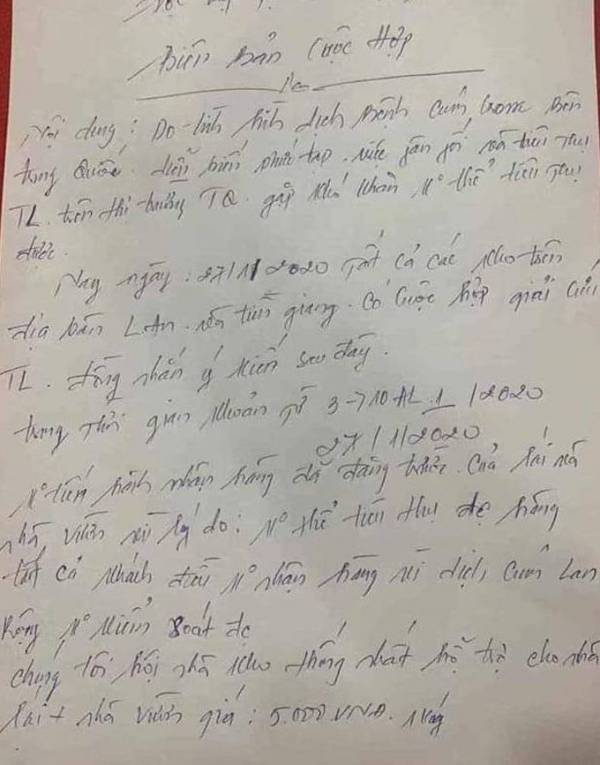 Biên Bản Cuộc Họp
Nội dung: Do tình hình dịch Bệnh Cúm Corona Bên
trung Quốc. diễn biến phức tạp. việc và tiêu thụ
TL. trên thị trường TQ. gặp khó khăn K° thể tiêu thụ
được.
Nay ngày: 27/1/2020 Tất cả các kho trên
địa bàn L.An. và tiền giang. có cuộc họp giải cứu
TL. đồng nhất ý kiến sau đây.
trong thời gian khoản từ 3 → 10 AL 1/2020
27/1/2020
K° tiến hành nhận hàng đã trước. Của lái và
nhà vườn vì lý do: K° thể tiêu thụ đc hàng
tất cả khách đều K° nhận hàng vì dịch Cúm Lan
Rộng K° kiểm soát đc
chúng tôi hội nhà kho thống nhất hỗ trợ cho nhà
lái + nhà vườn giá: 5.000 VNĐ. 1 kg